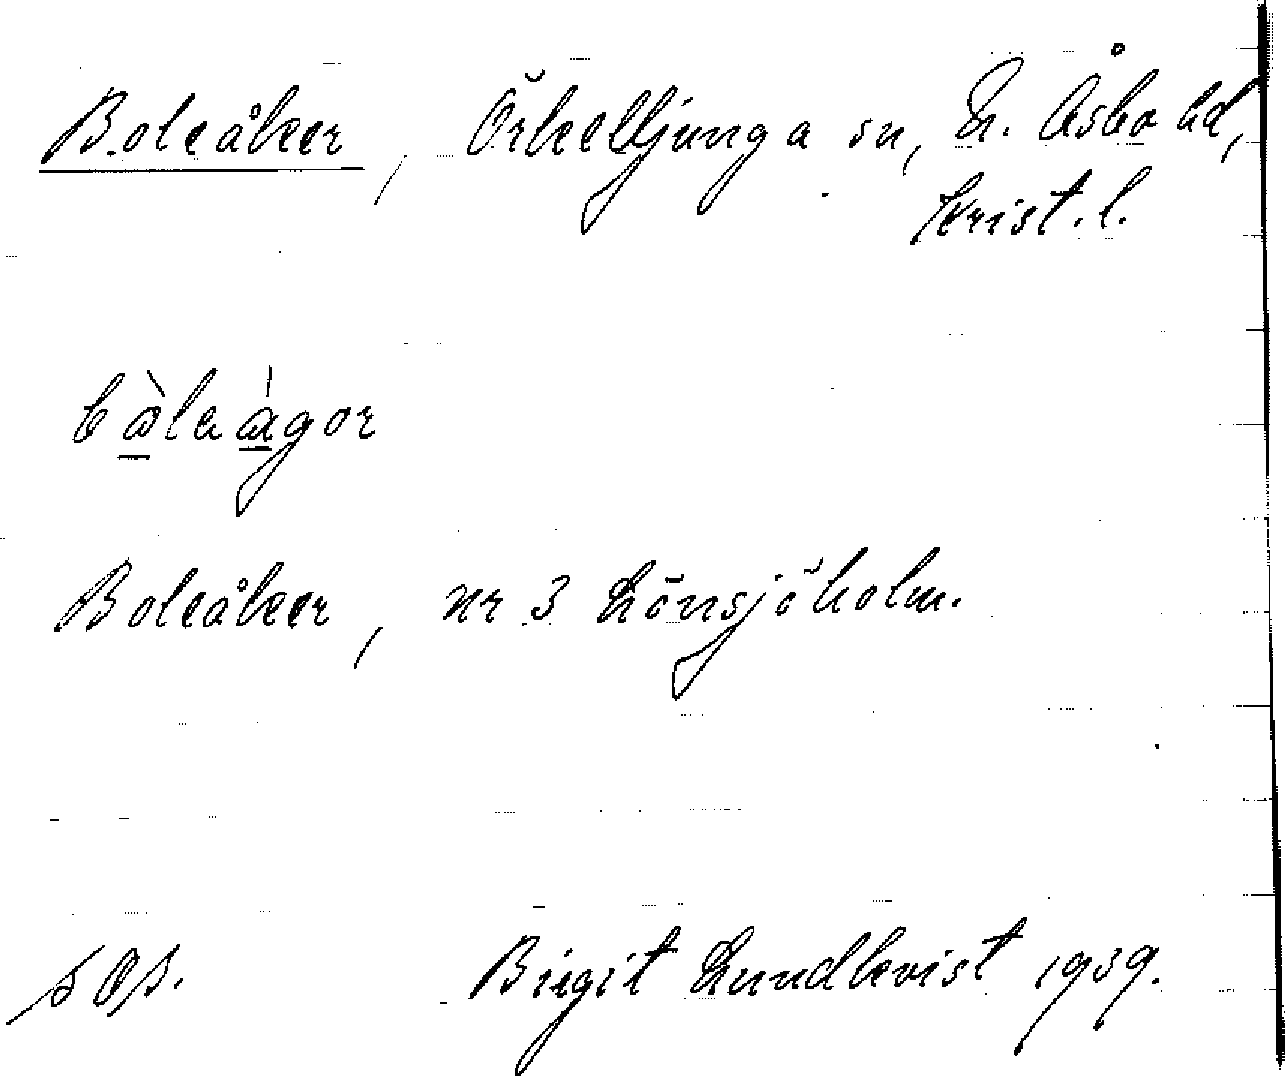 Boleåker, Örkelljunga sn, N. Åsbo hd,
Krist. l.
Boleåker, nr 3 Lönsjöholm.
Birgit Lundkvist 1939.